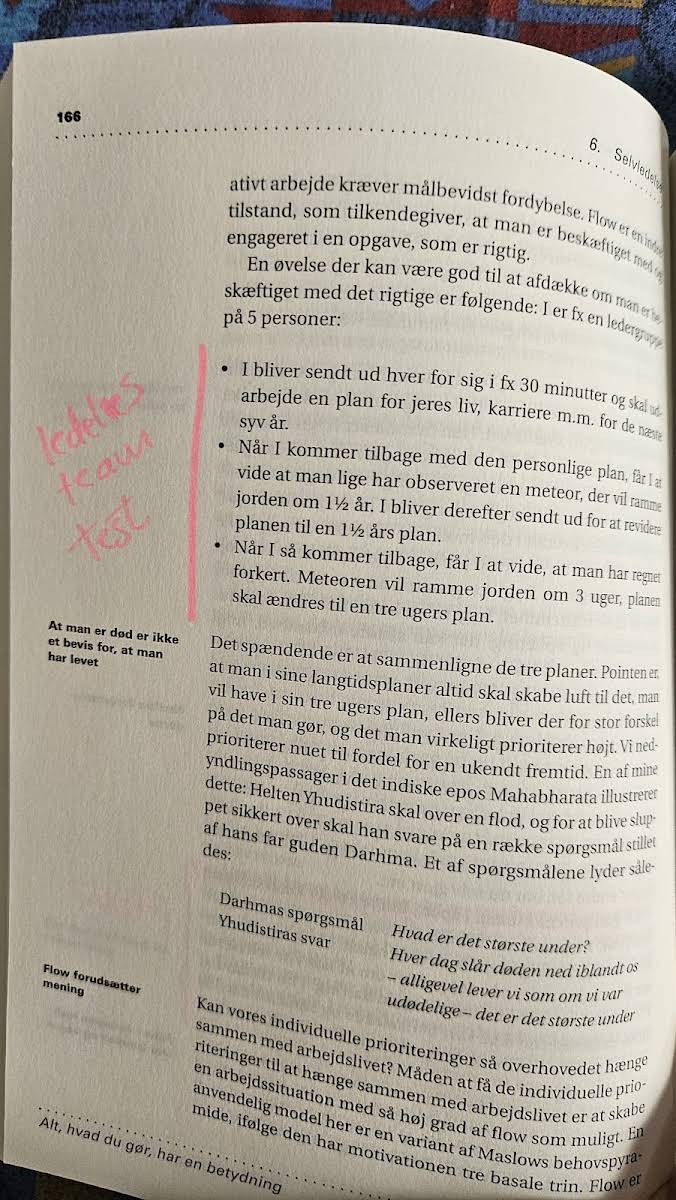 166
6. Selvledelse
ativt arbejde kræver målbevidst fordybelse. Flow er en indre
tilstand, som tilkendegiver, at man er beskæftiget med og
engageret i en opgave, som er rigtig.
En øvelse der kan være god til at afdække om man er be-
skæftiget med det rigtige er følgende: I er fx en ledergruppe
på 5 personer:
• I bliver sendt ud hver for sig i fx 30 minutter og skal ud-
arbejde en plan for jeres liv, karriere m.m. for de næste
syv år.
• Når I kommer tilbage med den personlige plan, får I at
vide at man lige har observeret en meteor, der vil ramme
jorden om 1½ år. I bliver derefter sendt ud for at revidere
planen til en 1½ års plan.
• Når I så kommer tilbage, får I at vide, at man har regnet
forkert. Meteoren vil ramme jorden om 3 uger, planen
skal ændres til en tre ugers plan.
ledelses
team
test
At man er død er ikke
et bevis for, at man
har levet
Det spændende er at sammenligne de tre planer. Pointen er,
at man i sine langtidsplaner altid skal skabe luft til det, man
vil have i sin tre ugers plan, ellers bliver der for stor forskel
på det man gør, og det man virkeligt prioriterer højt. Vi ned-
prioriterer nuet til fordel for en ukendt fremtid. En af mine
yndlingspassager i det indiske epos Mahabharata illustrerer
dette: Helten Yhudistira skal over en flod, og for at blive slup-
pet sikkert over skal han svare på en række spørgsmål stillet
af hans far guden Darhma. Et af spørgsmålene lyder såle-
des:
Darhmas spørgsmål Hvad er det største under?
Yhudistiras svar Hver dag slår døden ned iblandt os
– alligevel lever vi som om vi var
udødelige – det er det største under
Flow forudsætter
mening
Kan vores individuelle prioriteringer så overhovedet hænge
sammen med arbejdslivet? Måden at få de individuelle prio-
riteringer til at hænge sammen med arbejdslivet er at skabe
en arbejdssituation med så høj grad af flow som muligt. En
anvendelig model her er en variant af Maslows behovspyra-
mide, ifølge den har motivationen tre basale trin. Flow er
Alt, hvad du gør, har en betydning